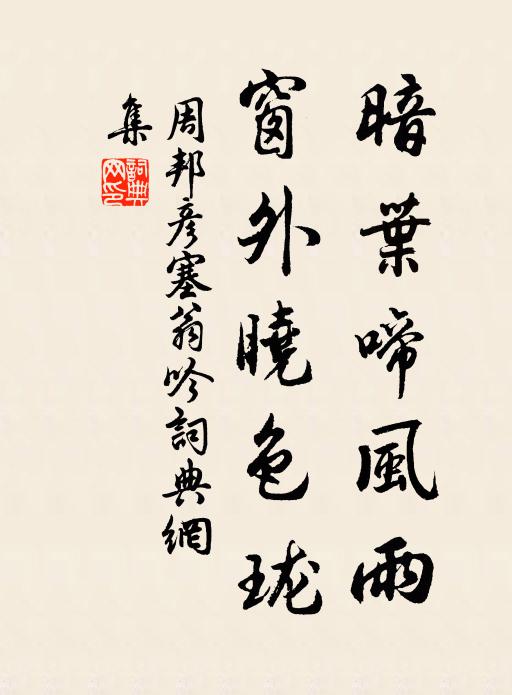 暗葉啼風雨
窗外曉色瓏
周邦彥塞翁吟詞典網
集
詞典
网印